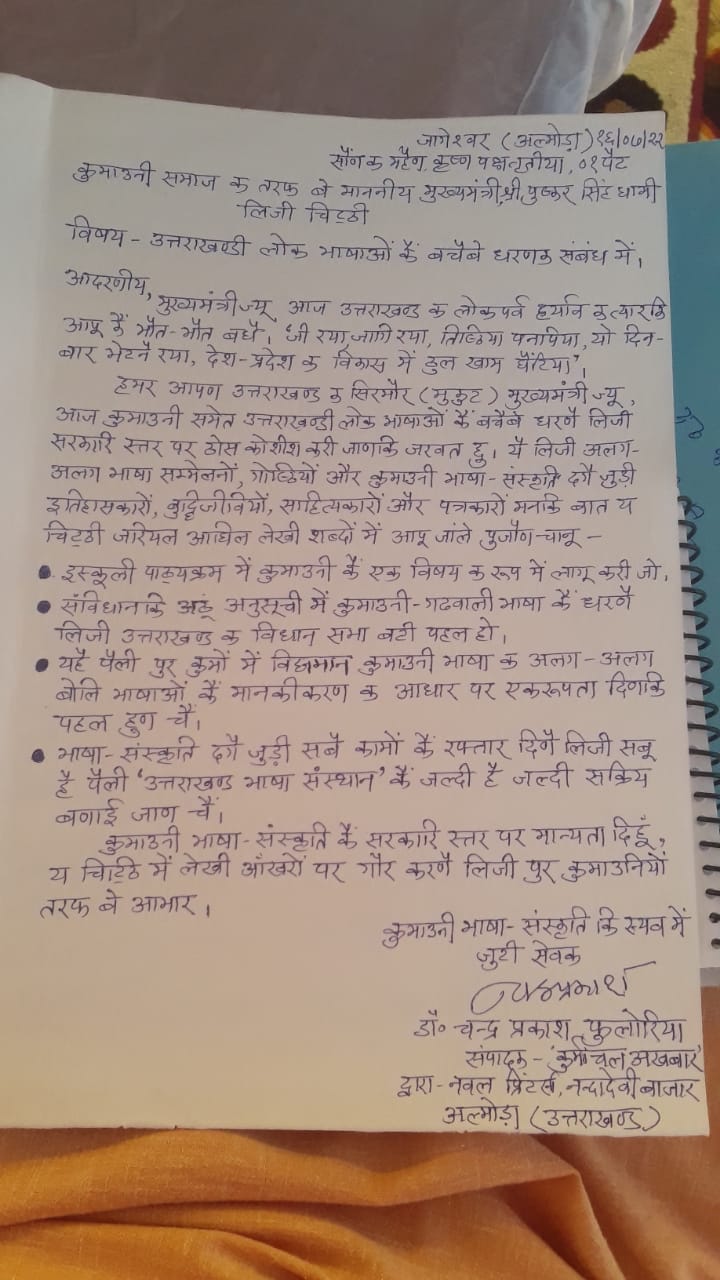 जागेश्वर (अल्मोड़ा) १६/०७/२२
सौंणक म्हैंण, कृष्ण पक्ष तृतीया, ०१ पैट
कुमाउनी समाज क तरफ बे माननीय मुख्यमंत्री श्री पुष्कर सिंह धामी
लिजी चिट्ठी
विषय - उत्तराखण्डी लोक भाषाओं कैं बचैबे धरणक संबंध में।
आदरणीय,
मुख्यमंत्री ज्यू, आज उत्तराखण्ड क लोकपर्व हर्याव क त्यारकि
आपू कैं भौत-भौत बधै। 'जी रया, जागि रया, तिष्ठिया पनपिया, यो दिन-
बार भेटनै रया, देश-प्रदेश क विकास में ठुल खाम घैंटिया'।
हमर आपण उत्तराखण्ड क सिरमौर (मुकुट) मुख्यमंत्री ज्यू,
आज कुमाउनी समेत उत्तराखण्डी लोक भाषाओं कैं बचैबे धरणै लिजी
सरकारि स्तर पर ठोस कोशीश करी जाणकि जरवत छु। यै लिजी अलग-
अलग भाषा सम्मेलनों, गोष्ठियों और कुमाउनी भाषा-संस्कृति दगै जुड़ी
इतिहासकारों, बुद्धिजीवियों, साहित्यकारों और पत्रकारों मनकि बात य
चिट्ठी जरियल आघिल लेखी शब्दों में आपू जांले पुजौंण चानू -
• इस्कूली पाठ्यक्रम में कुमाउनी कैं एक विषय क रूप में लागू करी जो।
• संविधानकि अठूं अनुसूची में कुमाउनी-गढवाली भाषा कैं धरणै
लिजी उत्तराखण्ड क विधान सभा बटी पहल हो।
• यहै पैली पुर कुमों में विद्यमान कुमाउनी भाषा क अलग-अलग
बोलि भाषाओं कैं मानकीकरण क आधार पर एकरूपता दिणकि
पहल हुण चैं।
• भाषा-संस्कृति दगै जुड़ी सबै कामों कैं रफ्तार दिणै लिजी सबू
है पैली 'उत्तराखण्ड भाषा संस्थान' कैं जल्दी है जल्दी सक्रिय
बणाई जाण चैं।
कुमाउनी भाषा-संस्कृति कैं सरकारि स्तर पर मान्यता दिहूँ,
य चिट्ठि में लेखी आँखरों पर गौर करणै लिजी पुर कुमाउनियों
तरफ बे आभार।
कुमाउनी भाषा-संस्कृति कि स्यव में
जुटी सेवक
डॉ॰ चन्द्र प्रकाश फुलोरिया
संपादक - 'कुर्मांचल अखबार'
द्वारा - नवल प्रिंटर्स, नन्दादेवी बाजार
अल्मोड़ा (उत्तराखण्ड)